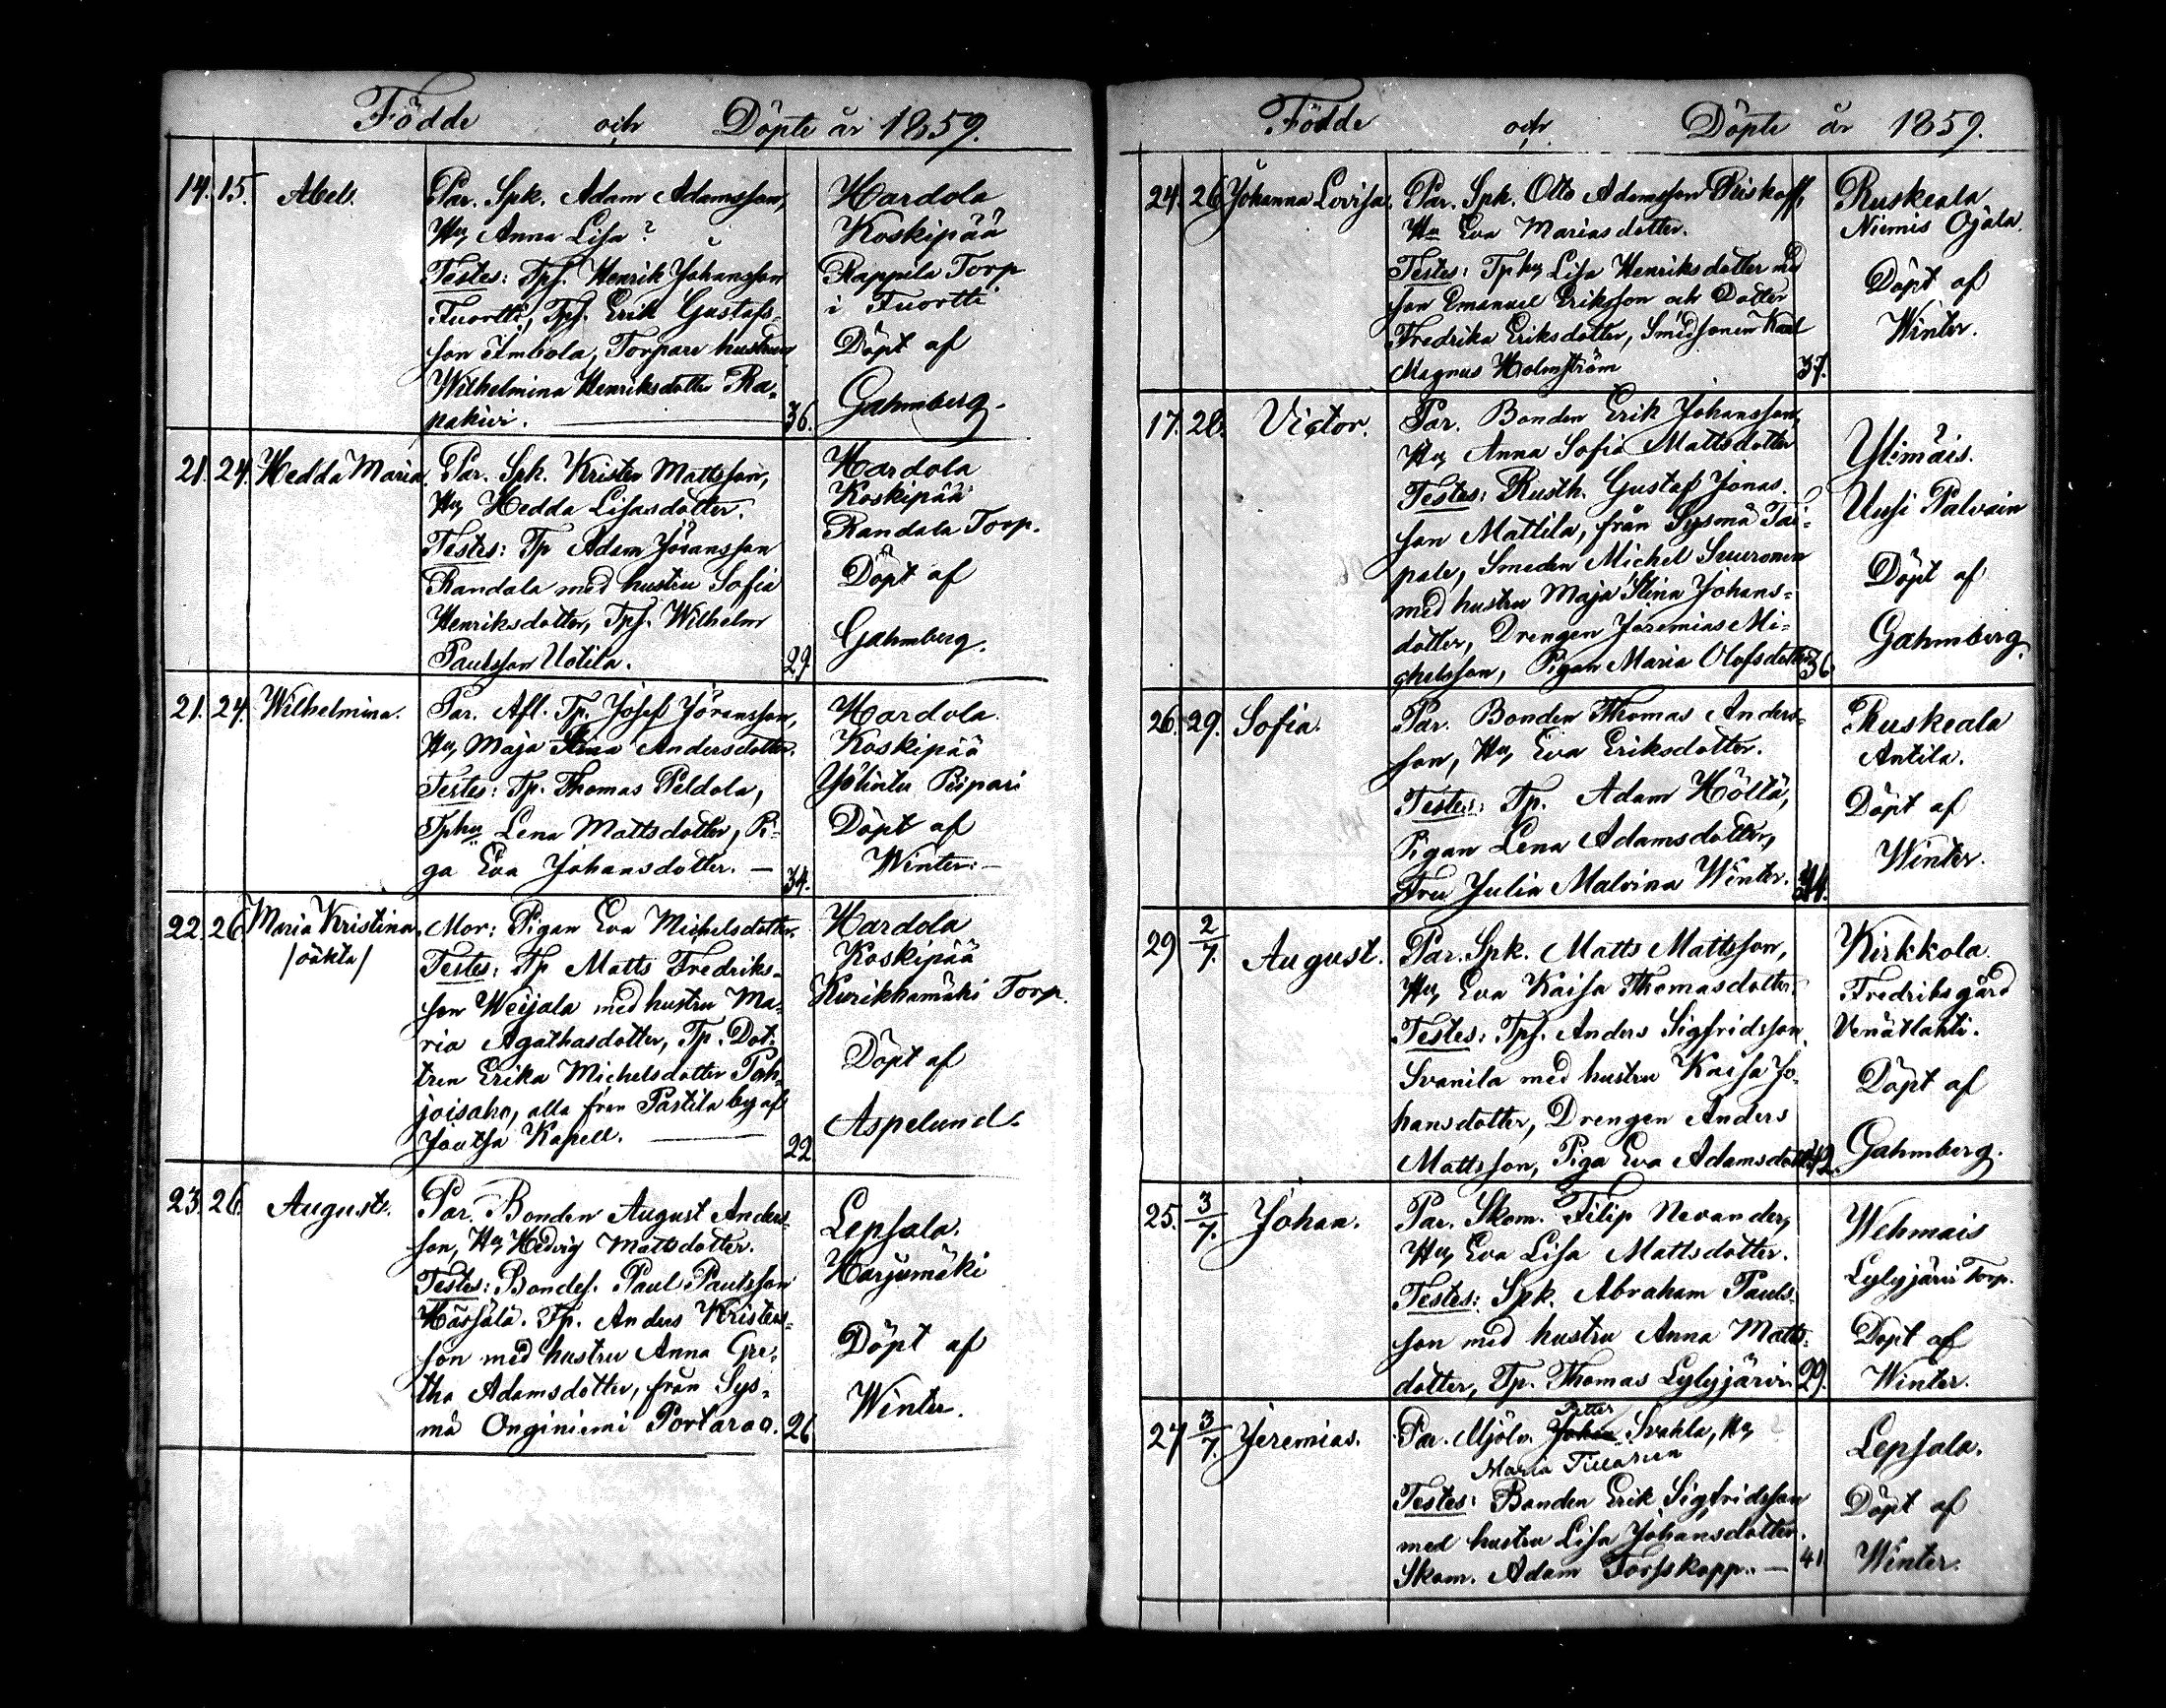 Födde och Döpte år 1859.
14. 15. Abel. Par. Spk. Adam Adamsson,
Hu, Anna Lisa ?
Testes: Tpf. Henrik Johansson
Tuortti, Tpf. Erik Gustafs-
son Ambola, Torpare hustrun
Wilhelmina Henriksdotter Ra-
pakivi. 36.
Hardola
Koskipää
Rappila Torp
i Tuortti
Döpt af
Gahmberg.
21. 24. Hedda Maria. Par. Spk. Krister Mattsson,
Hu, Hedda Lisasdotter.
Testes: Tp Adam Jöransson
Randala med hustru Sofia
Henriksdotter, Tpf. Wilhelm
Paulsson Uotila. 29
Hardola
Koskipää
Randala Torp.
Döpt af
Gahmberg.
21. 24. Wilhelmina. Par. Afl. Tp. Josef Jöransson,
Hu, Maja Stina Andersdotter.
Testes: Tp. Thomas Peldola,
Tphu Lena Mattsdotter, Pi-
ga Eva Johansdotter. — 34.
Hardola.
Koskipää
Piipari
Döpt af
Winter. —
22. 26. Maria Kristina. Mor: Pigan Eva Michelsdotter.
/oäkta/ Testes: Tp Matts Fredriks-
son Weijala med hustru Ma-
ria Agathasdotter, Tp. Dot-
tren Erika Michelsdotter Poh-
joisaho, alla från Pastila by af
Joutsa Kapell. 22
Hardola
Koskipää
Kurikkamäki Torp.
Döpt af
Aspelund.
23. 26. August. Par. Bonden August Anders-
son, Hu, Hedvig Mattsdotter.
Testes: Bondes. Paul Paulsson
Hässälä. Tp. Anders Kristers-
son med hustru Anna Gre-
tha Adamsdotter, från Sys-
mä Onginiemi Portaraa. 26
Lepsala.
Harjumäki
Döpt af
Winter.
Födde och Döpte år 1859.
24. 26. Johanna Lovisa. Par. Spk. Otto Adamsson Riskoff,
Hu Eva Mariasdotter.
Testes: Tphu, Lisa Henriksdotter med
son Emanuel Eriksson och Dotter
Fredrika Eriksdotter, Smedsonen Karl
Magnus Holmström 37.
Ruskeala
Niemis Ojala.
Döpt af
Winter.
17. 28. Victor. Par. Bonden Erik Johansson,
Hu, Anna Sofia Mattsdotter
Testes: Rusth. Gustaf Jonas-
son Mattila, från Sysmä Tai-
pale, Smeden Michel Suuronen
med hustru Maja Stina Johans-
dotter, Drengen Jeremias Mi-
chelsson, Pigan Maria Olofsdotter 36
Ylimäis.
Uusi Palvain
Döpt af
Gahmberg.
26. 29. Sofia. Par. Bonden Thomas Anders-
son, Hu, Eva Eriksdotter.
Testes: Tp. Adam Höltä,
Pigan Lena Adamsdotter,
Fru Julia Malvina Winter. 44.
Ruskeala
Antila.
Döpt af
Winter.
29 2/7. August. Par. Spk. Matts Mattsson,
Hu, Eva Kaisa Thomasdotter.
Testes: Tpf. Anders Sigfridsson
Svanila med hustru Kaisa Jo-
hansdotter, Drengen Anders
Mattsson, Piga Eva Adamsdotter 42.
Kirkkola.
Fredriksgård
Venätlahti.
Döpt af
Gahmberg.
25. 3/7. Johan. Par. Skom. Filip Nevander,
Hu, Eva Lisa Mattsdotter.
Testes: Spk. Abraham Pauls-
son med hustru Anna Matts-
dotter, Tp. Thomas Lylyjärvi 29.
Wehmais
Lylyjärvi Torp.
Döpt af
Winter.
27 3/7. Jeremias. Par. Mjöln. Johan Petter Svahla, Hu,
Maria Tillanen
Testes: Bonden Erik Sigfridsson
med hustru Lisa Johansdotter.
Skom. Adam Forsskapp. — 41
Lepsala.
Döpt af
Winter.